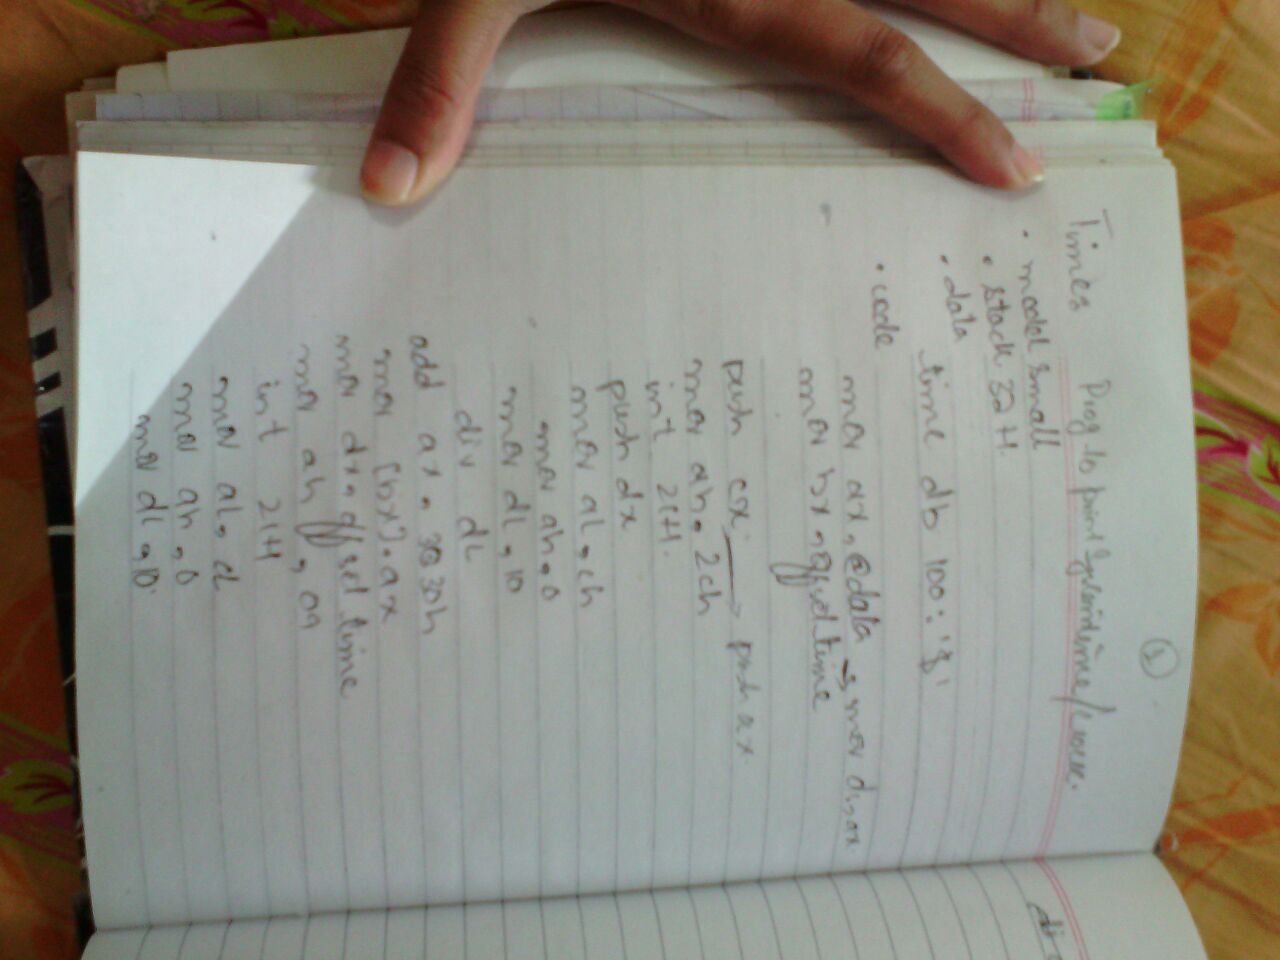 ①
Times Prog to print Time/
. model small
. stack 32H.
. data
time db 100: '$'
. code
mov ax, @data → mov ds, ax
mov bx, offset time
push cx → push ax
mov ah, 2ch
int 21H.
push dx
mov al, ch
mov ah, 0
mov dl, 10
div dl
add ax, 3030h
mov [bx], ax
mov dx, offset time
mov ah, 09
int 21H
mov al, cl
mov ah, 0
mov dl, 10.